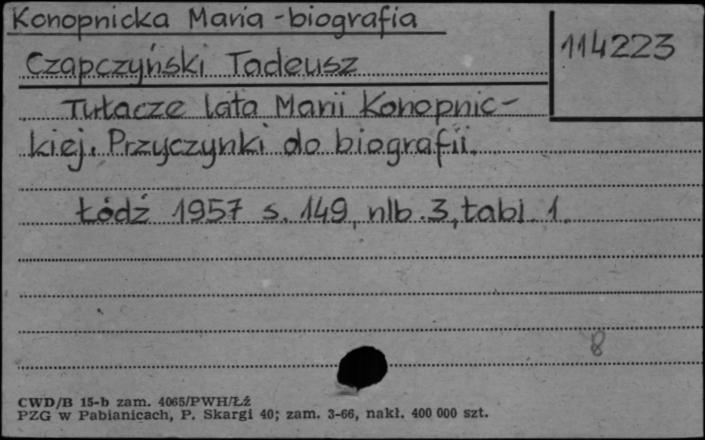 Konopnicka Maria - biografia
114223
Czapczyński Tadeusz
Tułacze lata Marii Konopnic-
kiej. Przyczynki do biografii.
Łódź 1957 s. 149, nlb. 3, tabl. 1.
8
CWD/B 15-b zam. 4065/PWH/Łż
PZG w Pabianicach, P. Skargi 40; zam. 3-66, nakł. 400 000 szt.